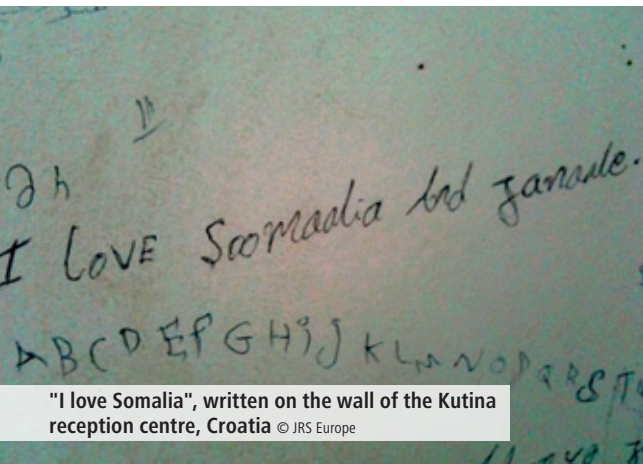 I LOVE Soomaalia and Janaale.
A B C D E f G H i J K L M N O P Q R S T
"I love Somalia", written on the wall of the Kutina
reception centre, Croatia © JRS Europe